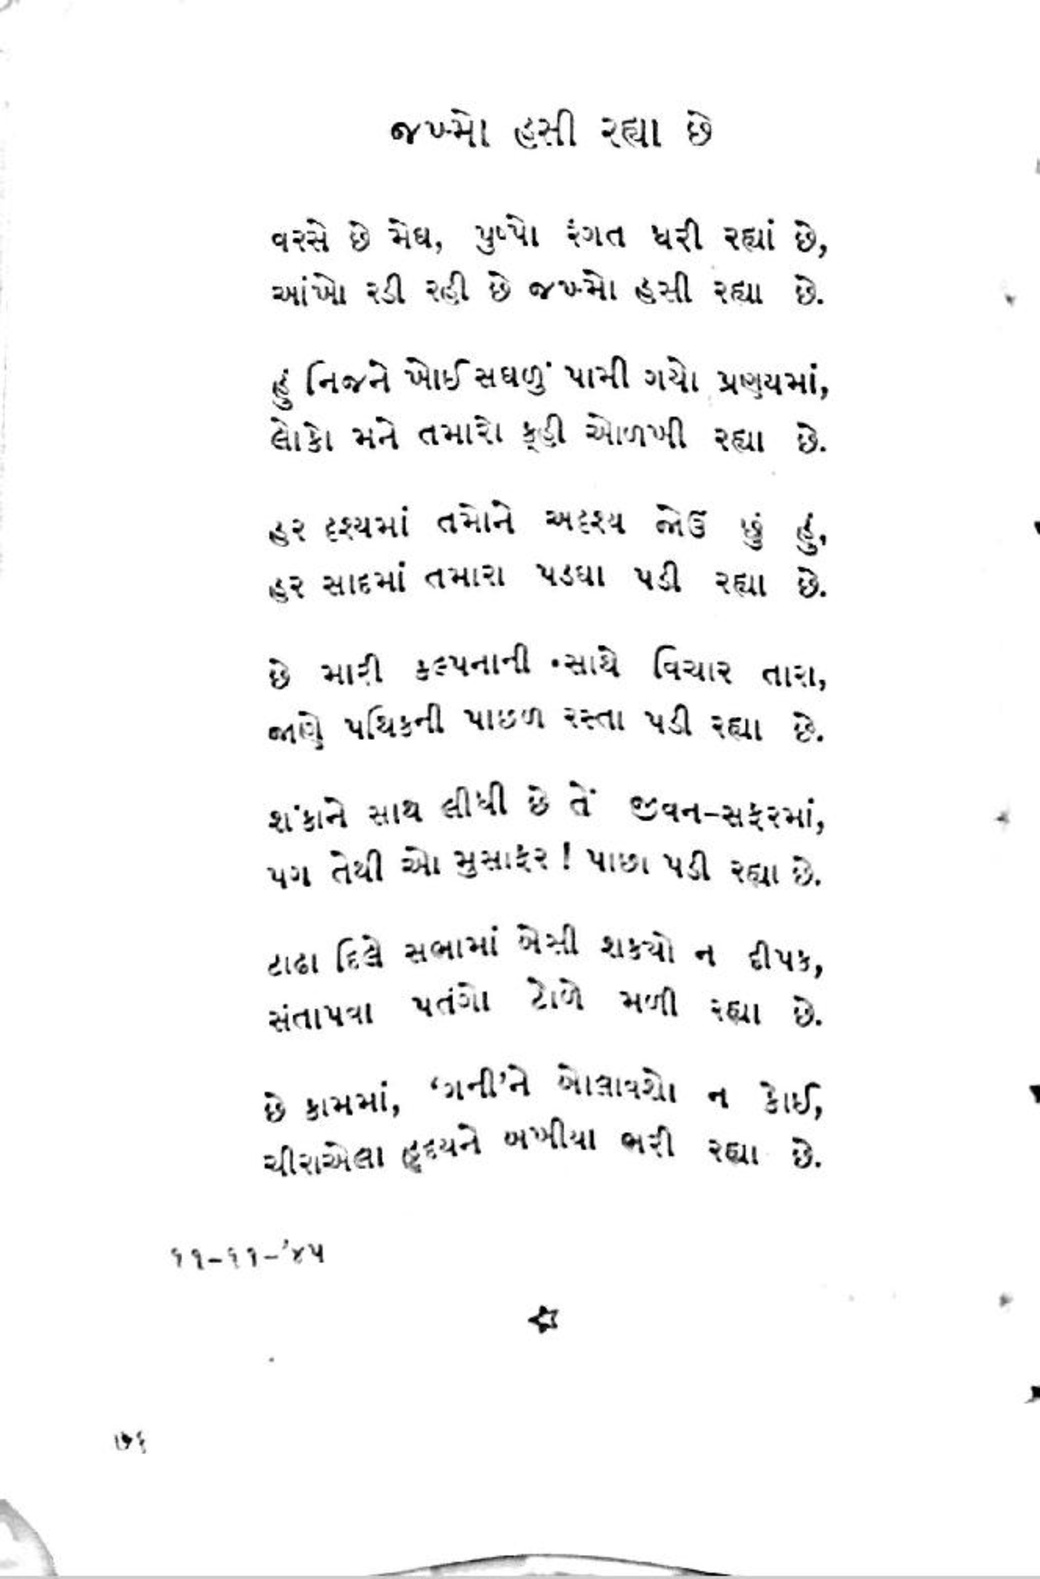 જખ્મો હસી રહ્યા છે
વરસે છે મેઘ, પુષ્પો રંગત ધરી રહ્યાં છે,
આંખો રડી રહી છે જખ્મો હસી રહ્યા છે.
હું નિજને ખોઈ સઘળું પામી ગયો પ્રણયમાં,
લોકો મને તમારો કહી ઓળખી રહ્યા છે.
હર દૃશ્યમાં તમોને અદૃશ્ય જોઉં છું હું,
હર સાદમાં તમારા પડઘા પડી રહ્યા છે.
છે મારી કલ્પનાની સાથે વિચાર તારા,
જાણે પથિકની પાછળ રસ્તા પડી રહ્યા છે.
શંકાને સાથ લીધી છે તેં જીવન-સફરમાં,
પગ તેથી ઓ મુસાફર ! પાછા પડી રહ્યા છે.
ટાઢા દિલે સભામાં બેસી શક્યો ન દીપક,
સંતાપવા પતંગો ટોળે મળી રહ્યા છે.
છે કામમાં, ‘ગની’ને બોલાવશો ન કોઈ,
ચીરાએલા હૃદયને બખીયા ભરી રહ્યા છે.
૧૧-૧૧-’૪૫
૭૬